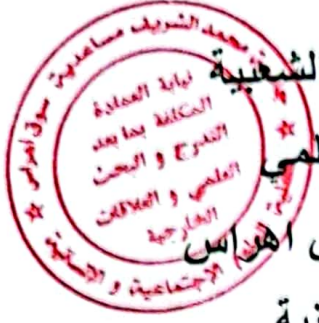 الشعبية
لمي
اهراس
محمد الشريف مساعدية سوق أهراس
نيابة العمادة
المكلفة بما بعد
التدرج و البحث
العلمي و العلاقات
الخارجية
الإجتماعية و الإنسانية